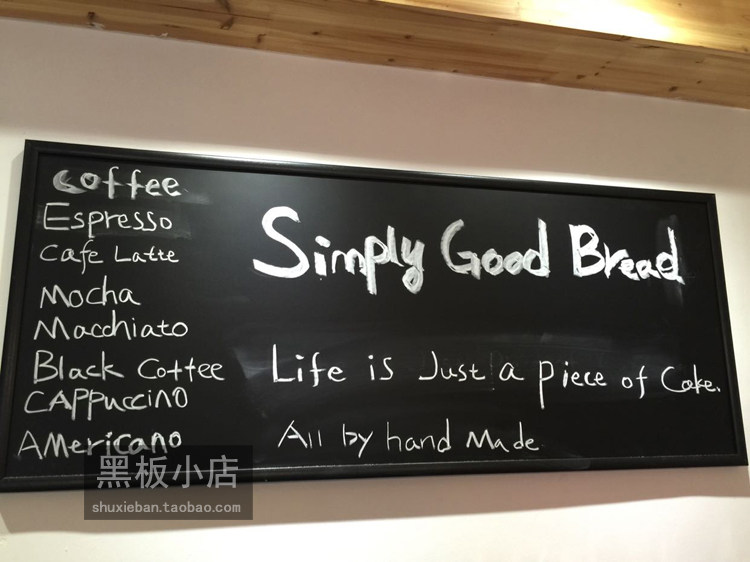 coffee
Espresso
Cafe Latte
Mocha
Macchiato
Black Coffee
CAPPuccino
AMericano
Simply Good Bread
Life is Just a piece of Cake.
All by hand Made
黑板小店
shuxieban.taobao.com